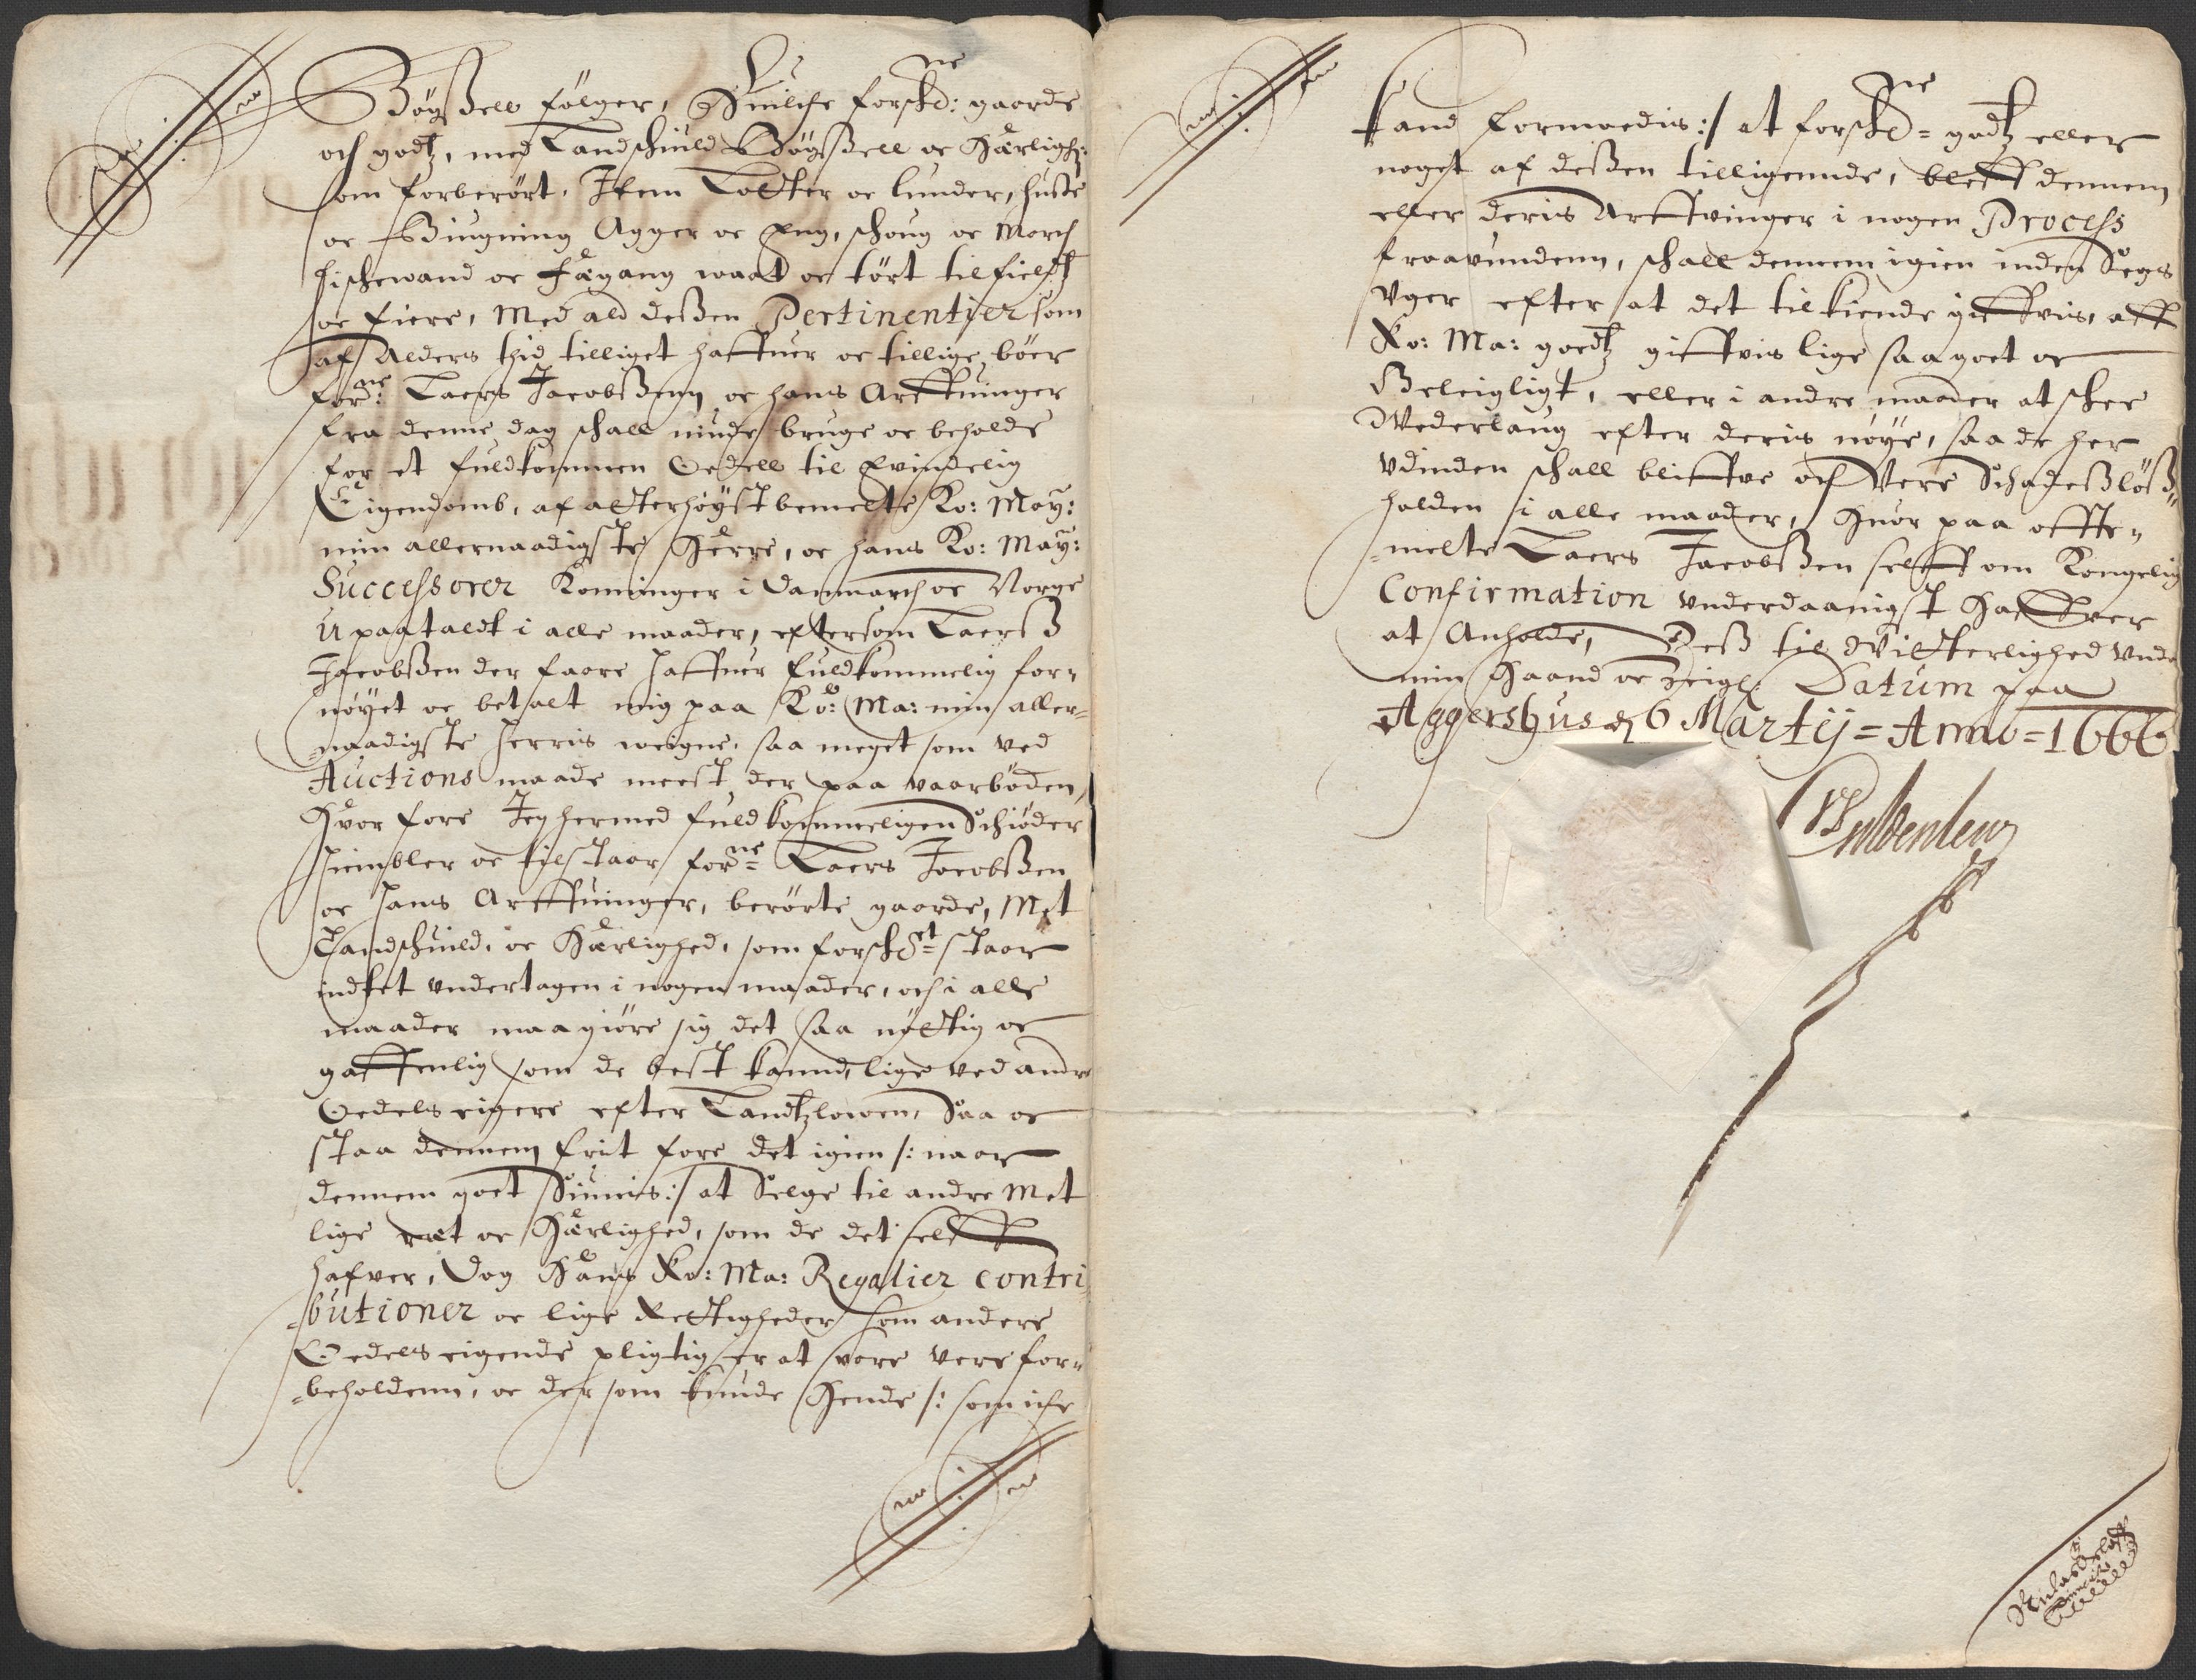 Bögßell følger, Huilche forskne: gaarde
och godtz, med Landschuld Bögßell oc Herligh:
som forberørt. Item Lotter oc lunder, huße
oc Biugning Agger oc Eng, schoug oc march
fischewand oc Fægang waat oc tört til fields
oc fiere, Med ald deßen Pertinentier som
af Alders thid tilliget haffuer oc tillige böer
forne: Laers Jacobßenn oc hans Arffuinger
fra denne dag schall niude bruge oc beholde
for et fuldkommen Oedell til Evindelig
Eigendomb, af alterhøyst bemelte Ko: May:
min allernaadigste Herre, oc hans Ko: May:
Successorer Konninger i Danmarch oc Norge
Upaataldt i alle maader, eftersom Laerß
Jacobßen der faare haffuer fuldkommelig for-
nöyet oc betalt mig paa Ko: Ma: min aller-
naadigste Herris weigne, saa meget som ved
Auctions maade meest der paa vaarböden,
Hvor fore Jeg hermed fuldkommeligen Schiøder
Hiembler oc tilstaar forne= Laers Jacobßen
oc hans Arffuinger, berörte gaarde, Met
Landschuld, oc Herlighed, som forschrt= staar
indtet undertagen i nogen maader, och i alle
maader maa giöre sig det saa nÿttig oc
gaffenlig som de best kannd, lige ved andre
Oedels eigere efter Landtzlowen, Saa oc
staa dennem frit fore det igien /: naar
dennem goet Siunis :/ at Selge til andre Met
lige ræt oc Herlighed, som de det selff
hafver, Dog Hans Ko: Ma: Regalier contri
-butioner oc lige Rettigheder som andere
Oedels eigende pligtig er at svare vere for-
-beholdenn, oc der som kunde Hende /: som iche
kand formoedis :/ at forskne= godtz eller
noget af deßen tilligennde, bleff dennem
eller deris Arffvinger i nogen Process
fraavundenn, schall dennem igien inden Sex
Uger efter at det tilkiende giffvis, aff
Ko: Ma: goedtz giffvis lige saa goet oc
Beleigligt, eller i andre maader at schee
Wederlaug efter deris nøye, saa de her
udinden schall bliffve och Vere Schadeßlöß-
holden i alle maader, Huor paa offte-
-melte Laers Jacobßen selff om Kongelig
Confirmation underdaanigst Haffver
at Anholde, Deß til Witterlighed under
min Haand oc zeigl: Datum paa
Aggershus d 6 Martij = Anno = 1666